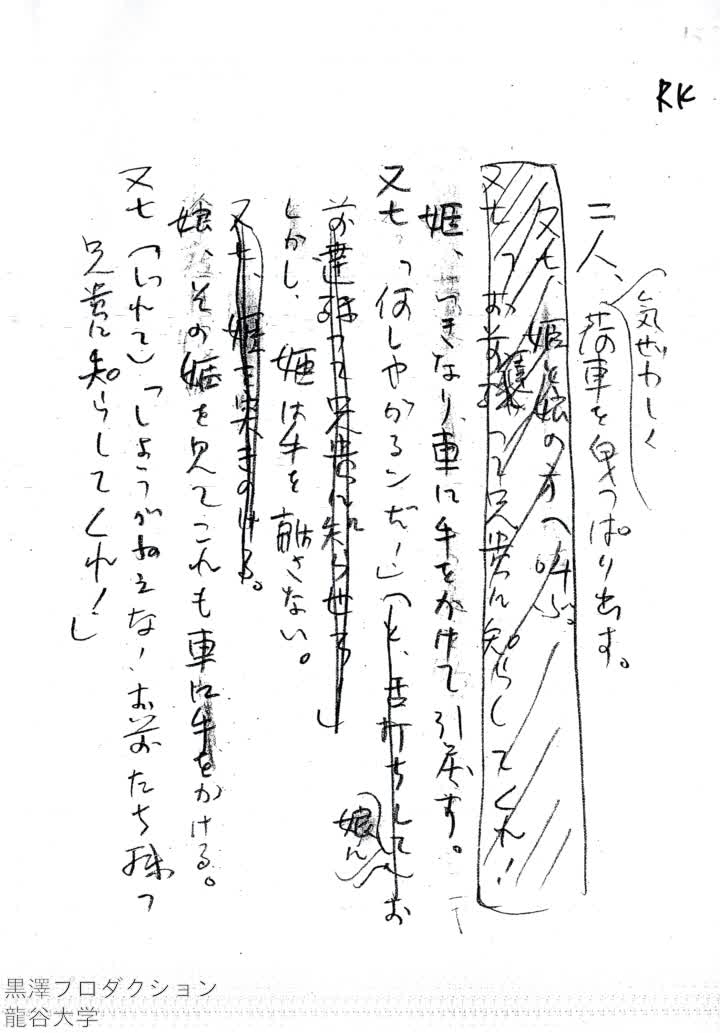 RK
気ぜわしく
二人、荷車を引っぱり出す。
又七、姫と娘の方へ叫ぶ。
又七「お前様って兄貴に知らしてくれ!
姫、いきなり、車に手をかけて引戻す。
又七「何しやがるンだ!」(と、舌打ちして)お
娘に
前達 って兄貴に知らせろ」
しかし、姫は手を離さない。
又七、姫を突きのける。
娘、その姫を見てこれも車に手をかける。
又七(つれて)「しようがねえな!お前たち 一つ
兄貴に知らしてくれ!」
黒澤プロダクション
龍谷大学